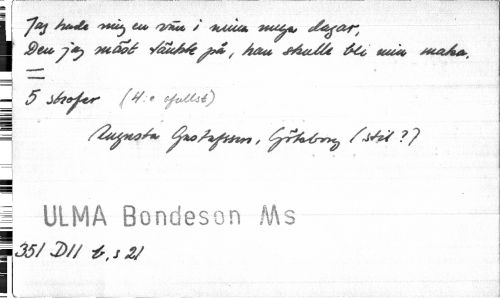 Jag hade mig en vän i mina unga dagar,
Den jag mäst tänkte på, han skulle bli min maka.
=
5 strofer (4:e ofullst)
Augusta Gustafsson, Göteborg (stil?)
ULMA Bondeson Ms
351 D11 b, s 21